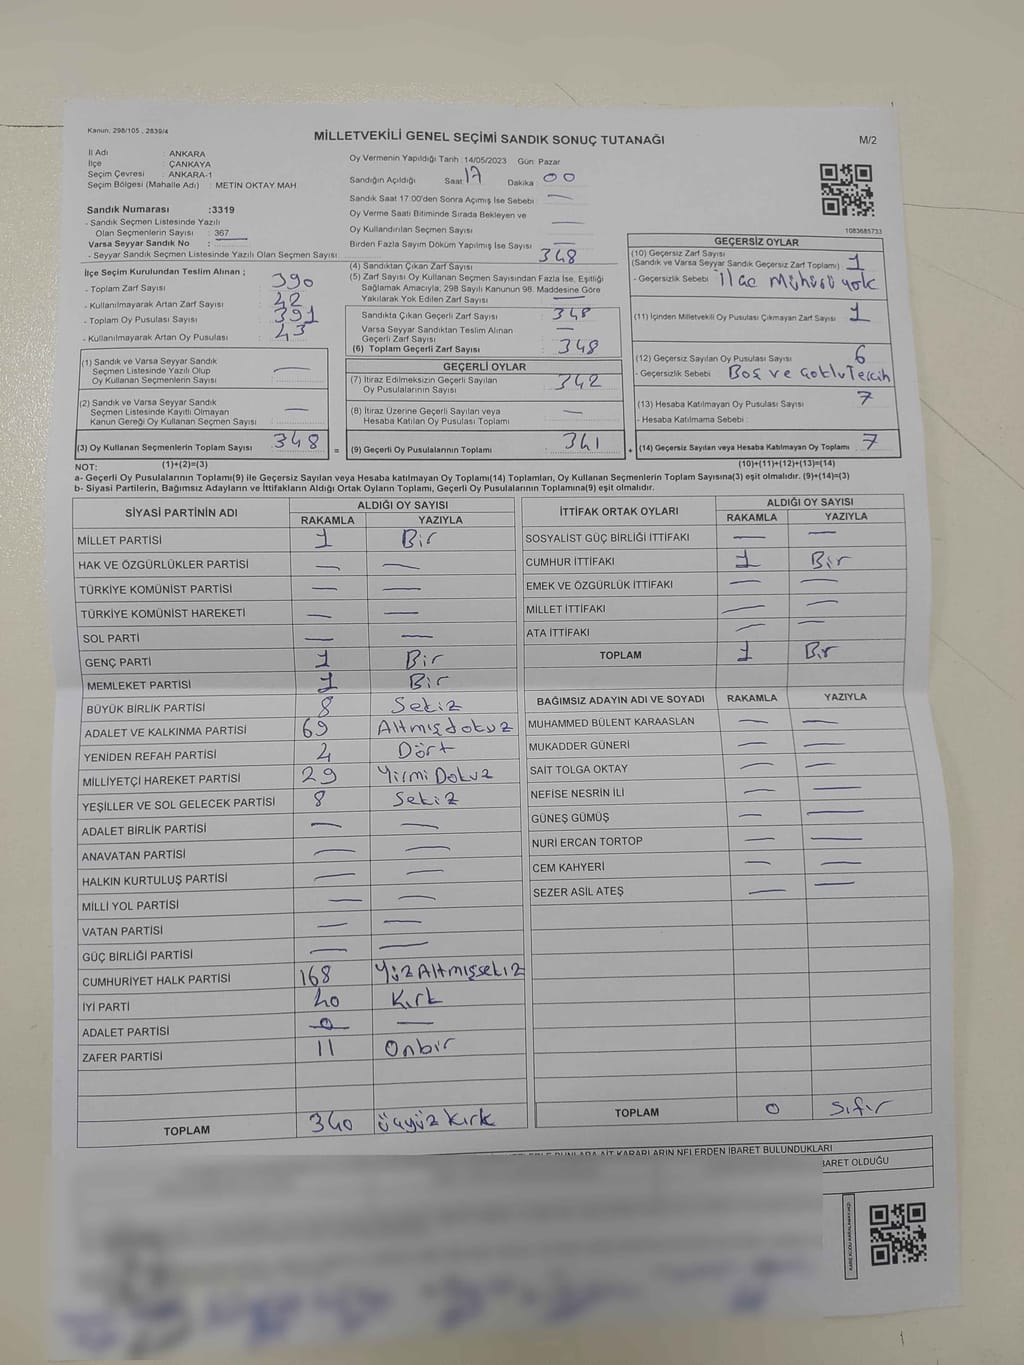 Kanun. 298/105 , 2839/4
MİLLETVEKİLİ GENEL SEÇİMİ SANDIK SONUÇ TUTANAĞI
M/2
İl Adı : ANKARA
İlçe : ÇANKAYA
Seçim Çevresi : ANKARA-1
Seçim Bölgesi (Mahalle Adı) : METİN OKTAY MAH
Sandık Numarası :3319
- Sandık Seçmen Listesinde Yazılı
Olan Seçmenlerin Sayısı : 367
Varsa Seyyar Sandık No :
- Seyyar Sandık Seçmen Listesinde Yazılı Olan Seçmen Sayısı :
Oy Vermenin Yapıldığı Tarih :14/05/2023 Gün: Pazar
Sandığın Açıldığı Saat : 17 Dakika : 00
Sandık Saat 17:00'den Sonra Açımış İse Sebebi : —
Oy Verme Saati Bitiminde Sırada Bekleyen ve
Oy Kullandırılan Seçmen Sayısı : —
Birden Fazla Sayım Döküm Yapılmış İse Sayısı : —
1083685733
İlçe Seçim Kurulundan Teslim Alınan ;
- Toplam Zarf Sayısı : 390
- Kullanılmayarak Artan Zarf Sayısı : 42
- Toplam Oy Pusulası Sayısı : 391
- Kullanılmayarak Artan Oy Pusulası : 43
(1) Sandık ve Varsa Seyyar Sandık
Seçmen Listesinde Yazılı Olup
Oy Kullanan Seçmenlerin Sayısı : —
(2) Sandık ve Varsa Seyyar Sandık
Seçmen Listesinde Kayıtlı Olmayan
Kanun Gereği Oy Kullanan Seçmen Sayısı : —
(3) Oy Kullanan Seçmenlerin Toplam Sayısı : 348
(1)+(2)=(3)
(4) Sandıktan Çıkan Zarf Sayısı : 348
(5) Zarf Sayısı Oy Kullanan Seçmen Sayısından Fazla İse, Eşitliği
Sağlamak Amacıyla, 298 Sayılı Kanunun 98. Maddesine Göre
Yakılarak Yok Edilen Zarf Sayısı : —
Sandıkta Çıkan Geçerli Zarf Sayısı : 348
Varsa Seyyar Sandıktan Teslim Alınan
Geçerli Zarf Sayısı : —
(6) Toplam Geçerli Zarf Sayısı : 348
GEÇERLİ OYLAR
(7) İtiraz Edilmeksizin Geçerli Sayılan
Oy Pusulalarının Sayısı : 342
(8) İtiraz Üzerine Geçerli Sayılan veya
Hesaba Katılan Oy Pusulası Toplamı : —
= (9) Geçerli Oy Pusulalarının Toplamı : 341 +
GEÇERSİZ OYLAR
(10) Geçersiz Zarf Sayısı
(Sandık ve Varsa Seyyar Sandık Geçersiz Zarf Toplamı) : 1
- Geçersizlik Sebebi : İlçe Mühürü yok
(11) İçinden Milletvekili Oy Pusulası Çıkmayan Zarf Sayısı : 1
(12) Geçersiz Sayılan Oy Pusulası Sayısı : 6
- Geçersizlik Sebebi : Boş ve çoklu Tercih
(13) Hesaba Katılmayan Oy Pusulası Sayısı : 7
- Hesaba Katılmama Sebebi :
(14) Geçersiz Sayılan veya Hesaba Katılmayan Oy Toplamı : 7
(10)+(11)+(12)+(13)=(14)
NOT:
a- Geçerli Oy Pusulalarının Toplamı(9) ile Geçersiz Sayılan veya Hesaba katılmayan Oy Toplamı(14) Toplamları, Oy Kullanan Seçmenlerin Toplam Sayısına(3) eşit olmalıdır. (9)+(14)=(3)
b- Siyasi Partilerin, Bağımsız Adayların ve İttifakların Aldığı Ortak Oyların Toplamı, Geçerli Oy Pusulalarının Toplamına(9) eşit olmalıdır.
SİYASİ PARTİNİN ADI ALDIĞI OY SAYISI
RAKAMLA YAZIYLA
MİLLET PARTİSİ 1 Bir
HAK VE ÖZGÜRLÜKLER PARTİSİ — —
TÜRKİYE KOMÜNİST PARTİSİ — —
TÜRKİYE KOMÜNİST HAREKETİ — —
SOL PARTİ — —
GENÇ PARTİ 1 Bir
MEMLEKET PARTİSİ 1 Bir
BÜYÜK BİRLİK PARTİSİ 8 Sekiz
ADALET VE KALKINMA PARTİSİ 69 Altmışdokuz
YENİDEN REFAH PARTİSİ 4 Dört
MİLLİYETÇİ HAREKET PARTİSİ 29 Yirmi Dokuz
YEŞİLLER VE SOL GELECEK PARTİSİ 8 Sekiz
ADALET BİRLİK PARTİSİ — —
ANAVATAN PARTİSİ — —
HALKIN KURTULUŞ PARTİSİ — —
MİLLİ YOL PARTİSİ — —
VATAN PARTİSİ — —
GÜÇ BİRLİĞİ PARTİSİ — —
CUMHURİYET HALK PARTİSİ 168 YüzAltmışsekiz
İYİ PARTİ 40 Kırk
ADALET PARTİSİ 0 —
ZAFER PARTİSİ 11 Onbir
TOPLAM 340 üçyüz kırk
İTTİFAK ORTAK OYLARI ALDIĞI OY SAYISI
RAKAMLA YAZIYLA
SOSYALİST GÜÇ BİRLİĞİ İTTİFAKI — —
CUMHUR İTTİFAKI 1 Bir
EMEK VE ÖZGÜRLÜK İTTİFAKI — —
MİLLET İTTİFAKI — —
ATA İTTİFAKI — —
TOPLAM 1 Bir
BAĞIMSIZ ADAYIN ADI VE SOYADI RAKAMLA YAZIYLA
MUHAMMED BÜLENT KARAASLAN — —
MUKADDER GÜNERİ — —
SAİT TOLGA OKTAY — —
NEFİSE NESRİN İLİ — —
GÜNEŞ GÜMÜŞ — —
NURİ ERCAN TORTOP — —
CEM KAHYERİ — —
SEZER ASİL ATEŞ — —
TOPLAM 0 Sıfır
AİT KARARLARIN NELERDEN İBARET BULUNDUKLARI
İBARET OLDUĞU